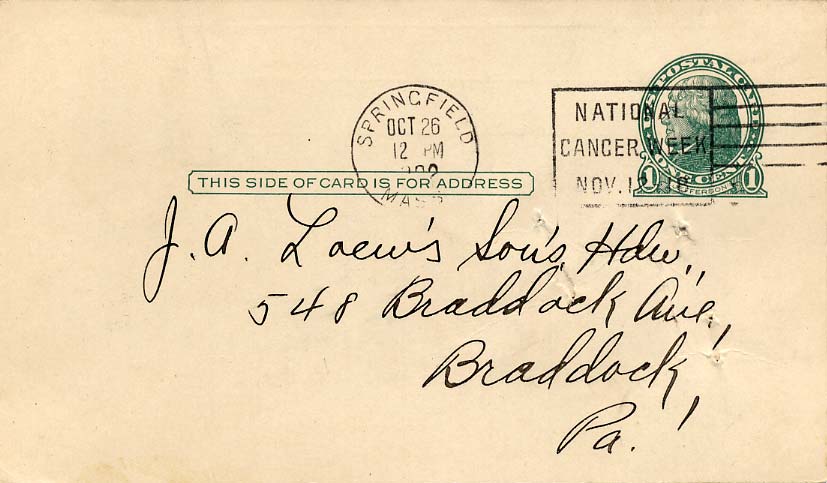 U.S. POSTAL CARD
SPRINGFIELD
OCT 26
12 PM
MASS
NATIONAL
CANCER WEEK
NOV.
1 ONE CENT 1
JEFFERSON
THIS SIDE OF CARD IS FOR ADDRESS
J. A. Loew's Son's Hdw.,
548 Braddock Ave,
Braddock,
Pa.